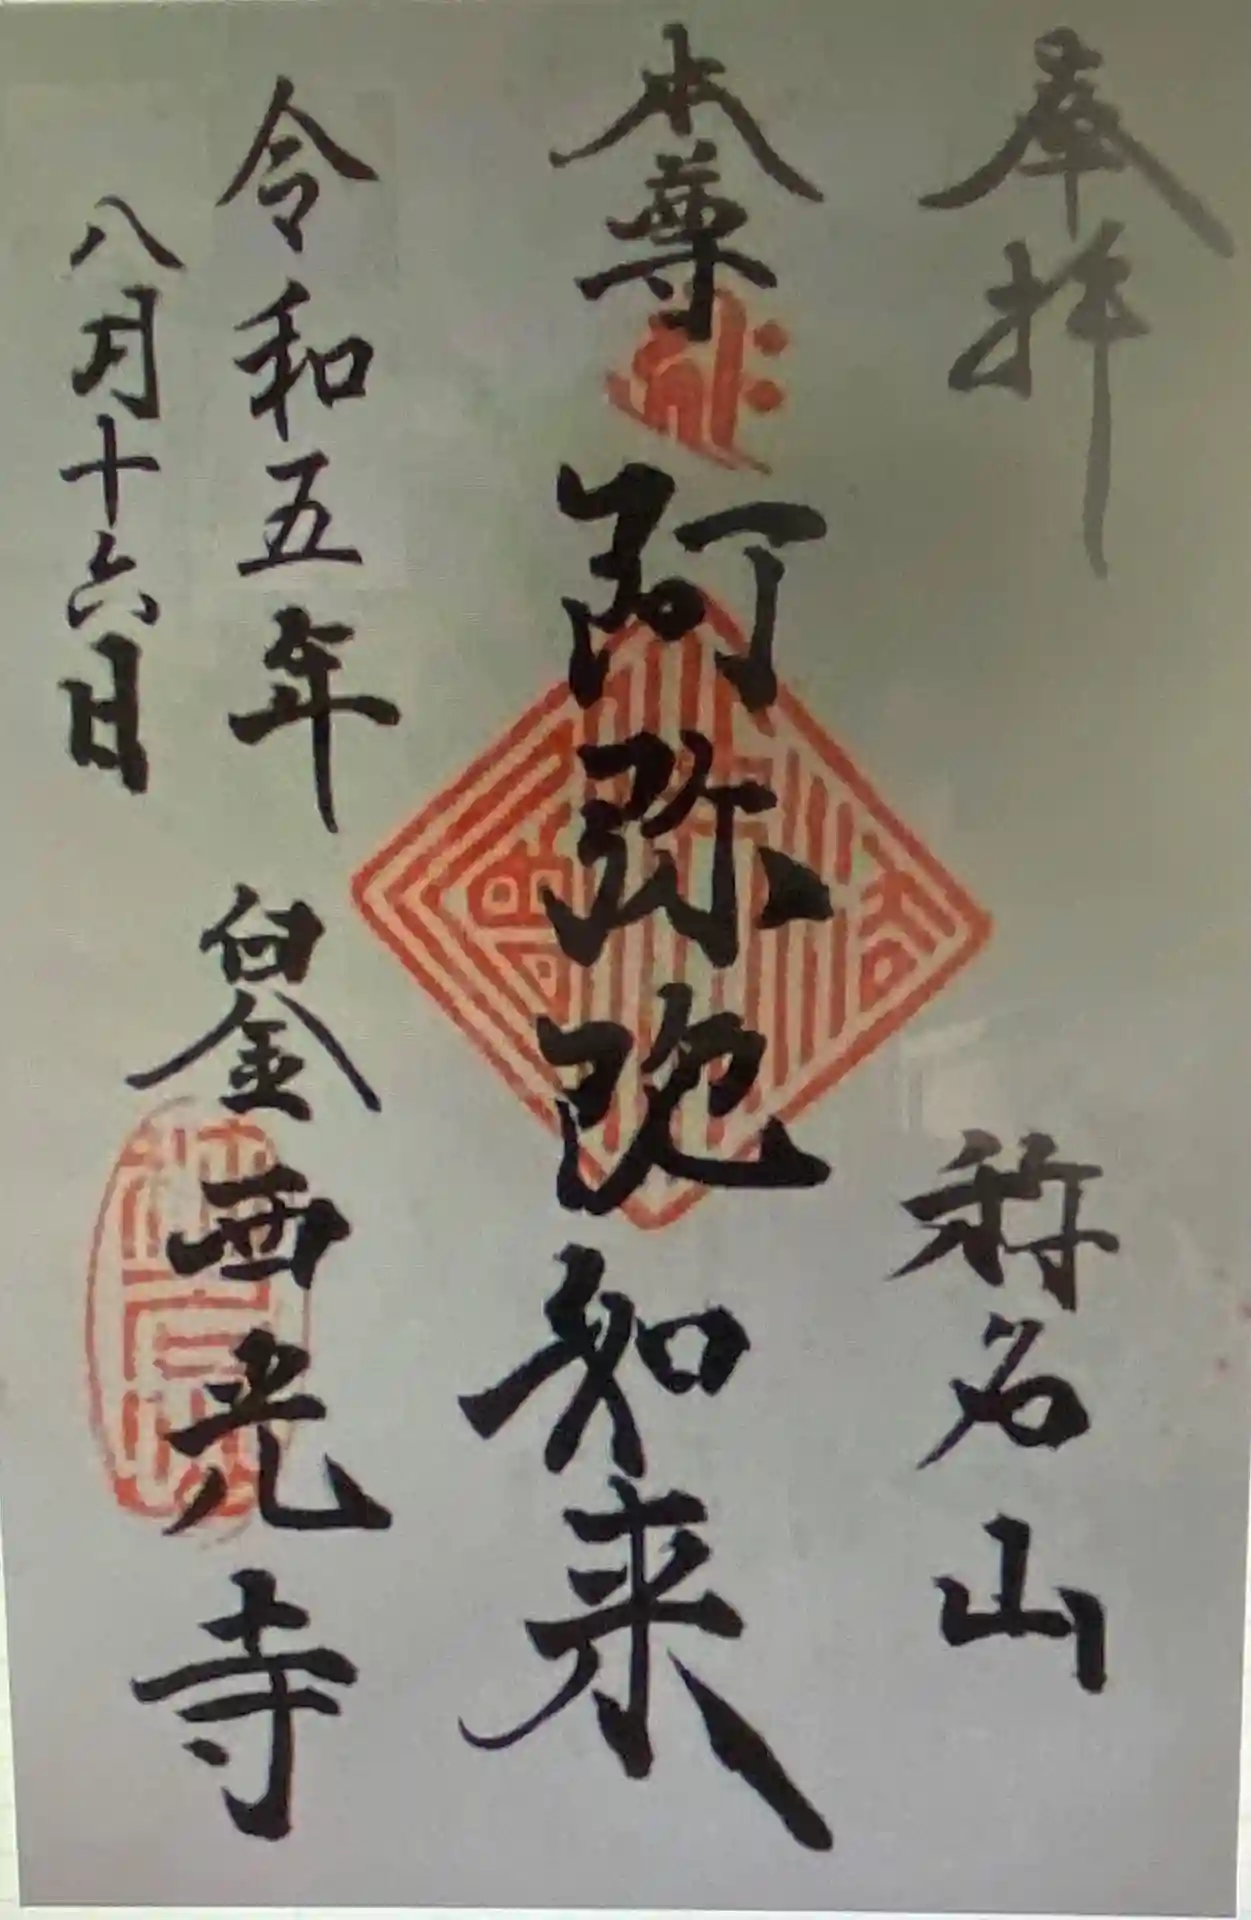 奉拝
称名山
本尊
阿弥陀如来
令和五年
八月十六日
白金西光寺